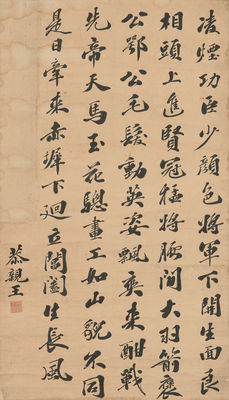 凌煙功臣少顏色將軍下開生面良
相頭上進賢冠猛將腰間大羽箭褒
公鄂公毛髮動英姿飄爽來酣戰
先帝天馬玉花驄畫工如山貌不同
是日牽來赤墀下迴立閶闔生長風
恭親王